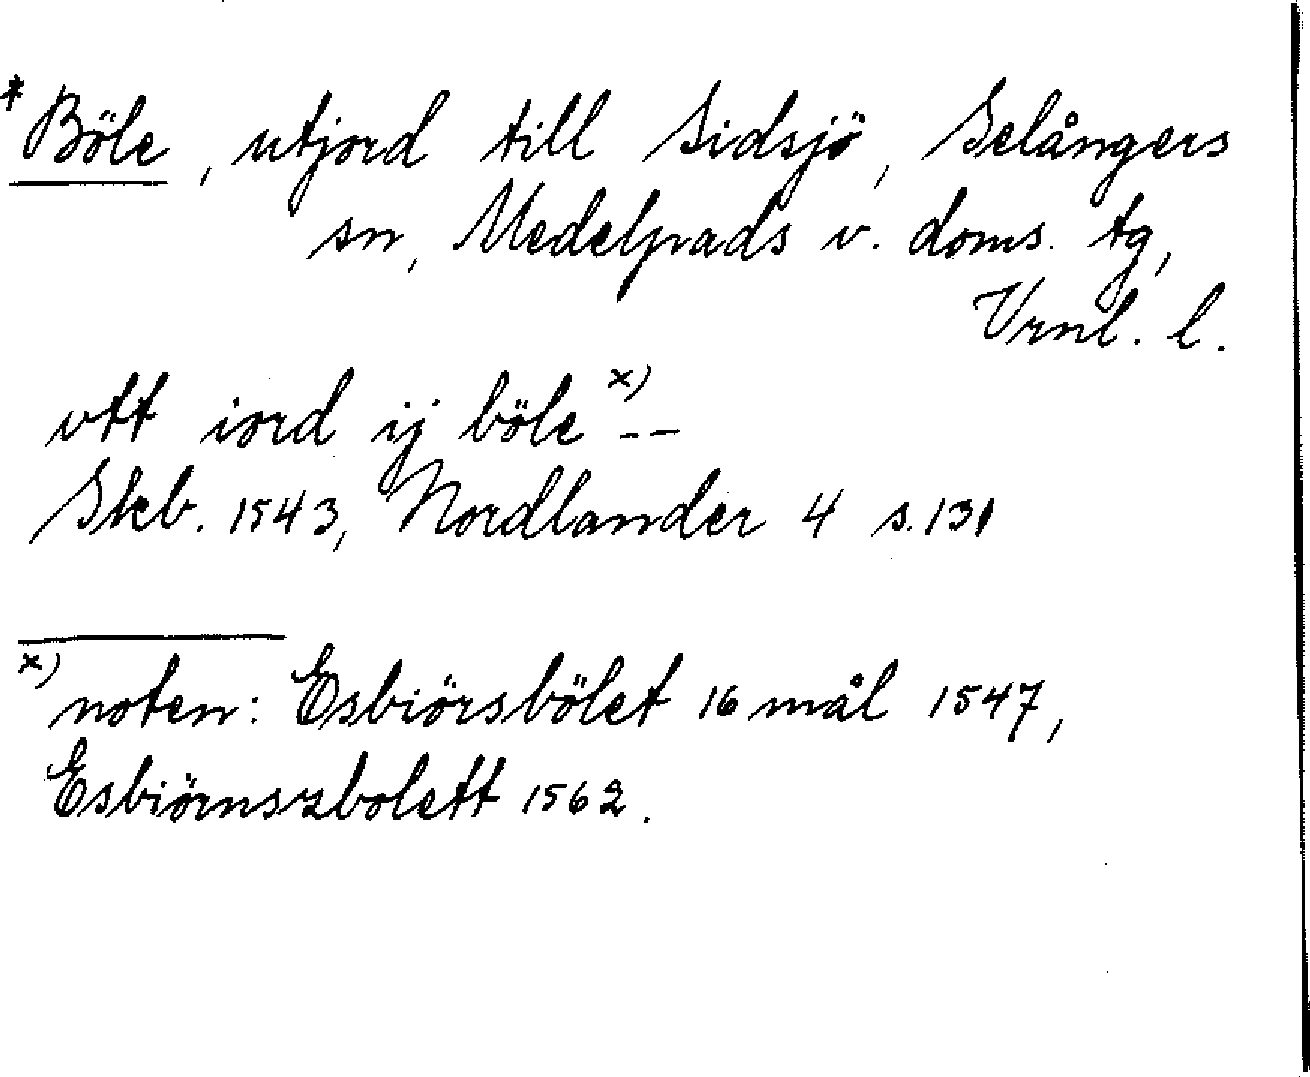 *Böle, utjord till Sidsjö, Selångers
sn, Medelpads v. doms. tg,
Vrnl. l.
vtt iord ij böle x) --
Skb. 1543, Nordlander 4 s. 131
x) noten: Esbiörsbölet 16 mål 1547,
Esbiörnszbolett 1562.